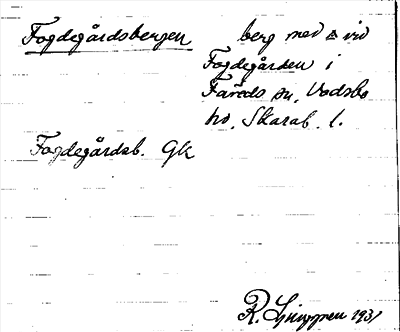 Fogdegårdsbergen
berg med △ vid
Fogdegården i
Fåreds sn, Vadsbo
hd, Skarab. l.
Fogdegårdsb. Gk
R. Ljunggren 1931